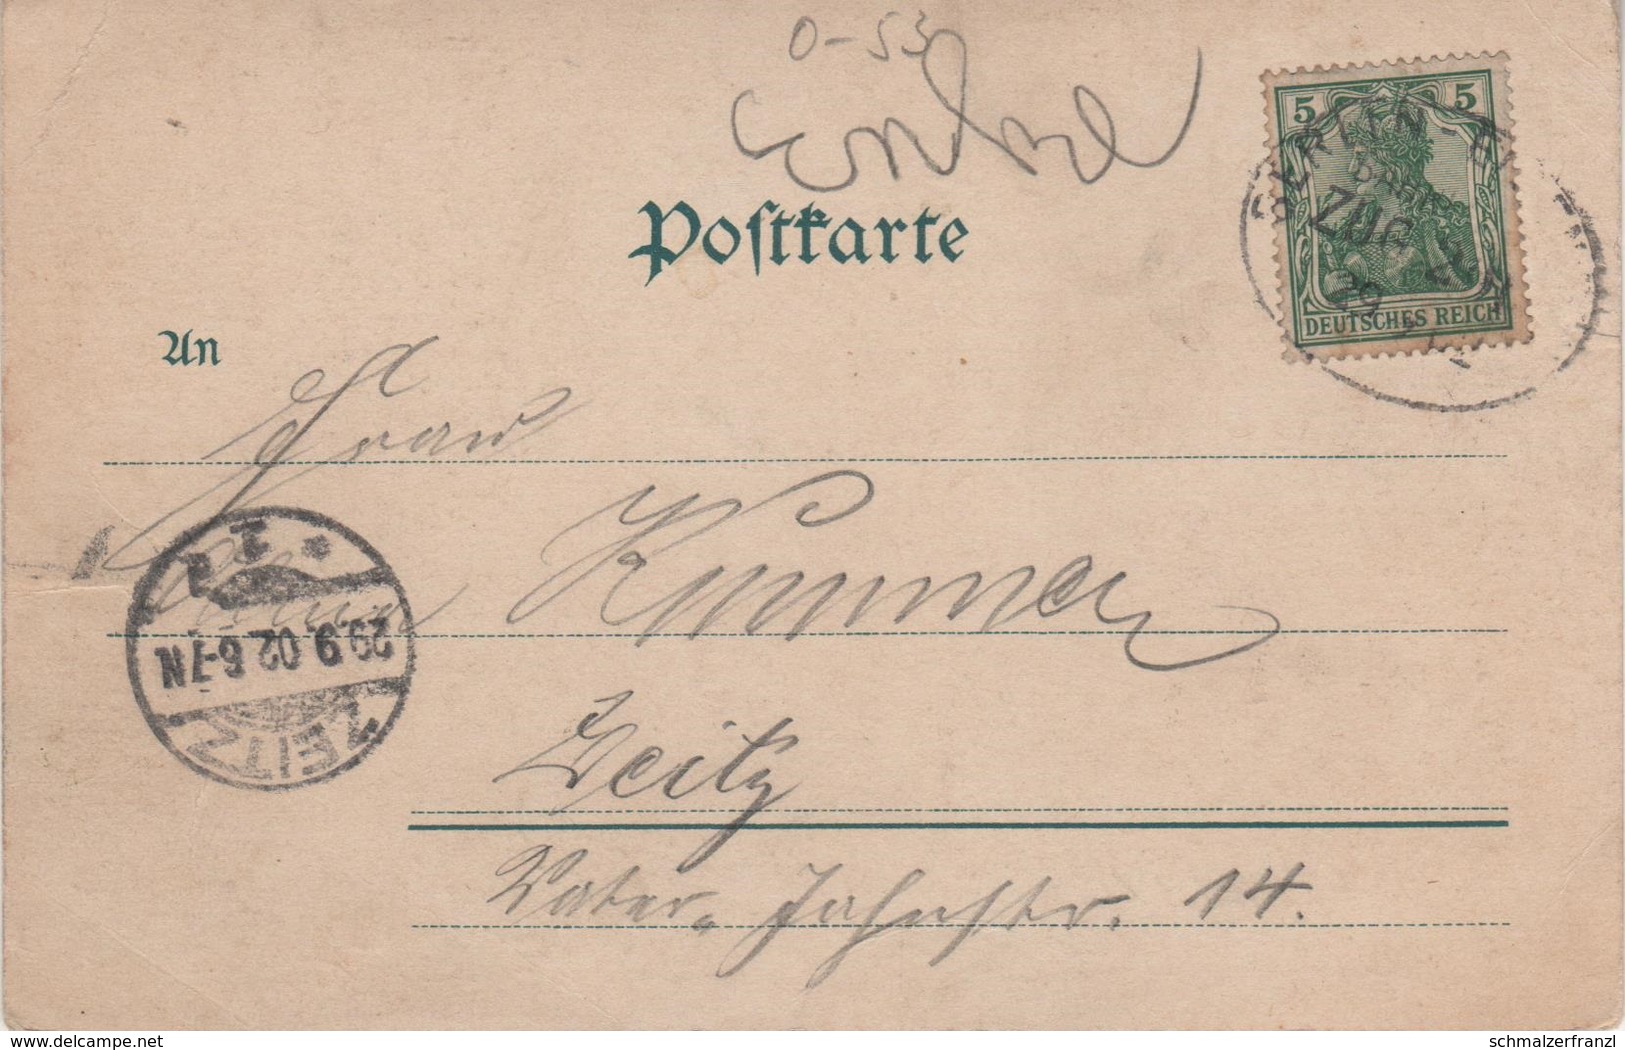 0-53
Postkarte
5 5
DEUTSCHES REICH
BERLIN
ZUG
29
An
Frau
Kummer
Zeitz
Vater-Jahnstr. 14.
ZEITZ
29.9.02 6-7N
delcampe.net
schmalzerfranzl